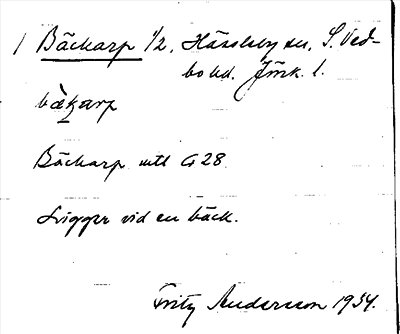 / Bäckarp 1/2, Hässleby sn, S. Ved-
bo hd. Jönk. l.
bæ̀ḵarp
Bäckarp mtl G 28
Ligger vid en bäck.
Fritz Andersson 1934.